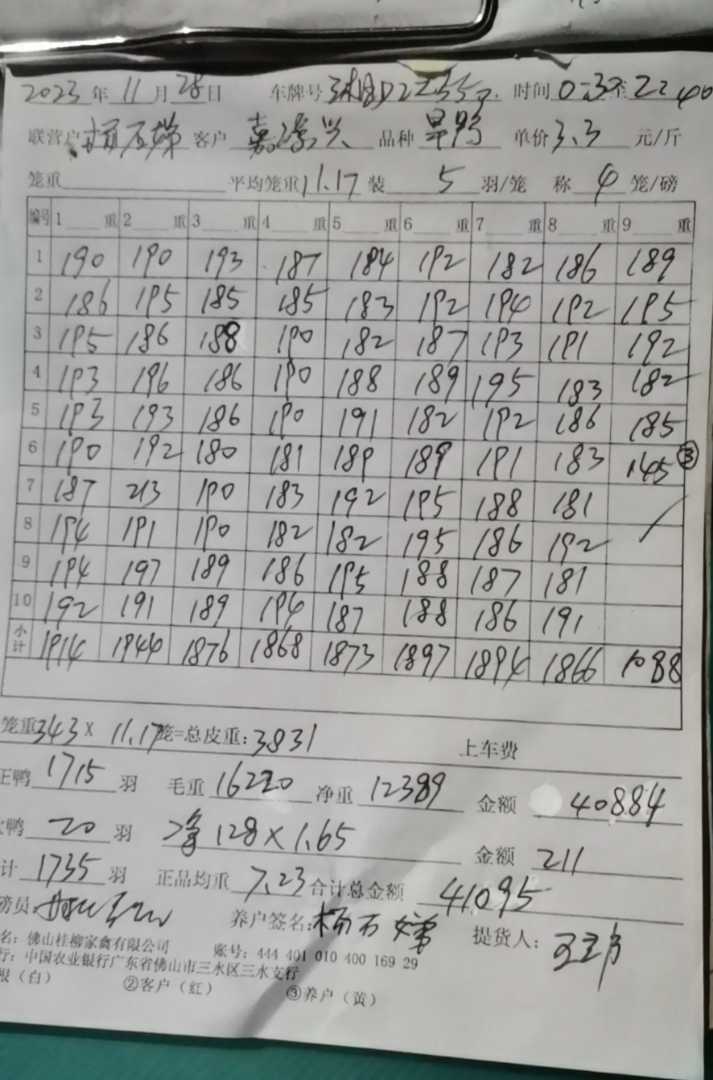 2023 年 11 月 28 日 车牌号 时间 0:30至22:40
联营户 杨石娣 客户 嘉鸿兴 品种 旱鸭 单价 3.3 元/斤
笼重 平均笼重 11.17 装 5 羽/笼 称 4 笼/磅
编号 1 重 2 重 3 重 4 重 5 重 6 重 7 重 8 重 9 重
1 190 190 193 187 184 192 182 186 189
2 186 195 185 185 183 192 194 192 195
3 195 186 188 190 182 187 193 191 192
4 193 196 186 190 188 189 195 183 182
5 193 193 186 190 191 182 192 186 185
6 190 192 180 181 189 189 191 183 145 ③
7 187 213 190 183 192 195 188 181
8 194 191 190 182 182 195 186 192
9 194 197 189 186 195 188 187 181
10 192 191 189 194 187 188 186 191
小计 1914 1944 1876 1868 1873 1897 1894 1866 1088
笼重 343 × 11.17 笼=总皮重: 3831 上车费
正鸭 1715 羽 毛重 16220 净重 12389 金额 40884
鸭 20 羽 净 128×1.65 金额 211
计 1735 羽 正品均重 7.23 合计总金额 41095
磅员 养户签名: 杨石娣 提货人:
名: 佛山桂柳家禽有限公司 账号: 444 401 010 400 169 29
行: 中国农业银行广东省佛山市三水区三水支行
根（白） ②客户（红） ③养户（黄）